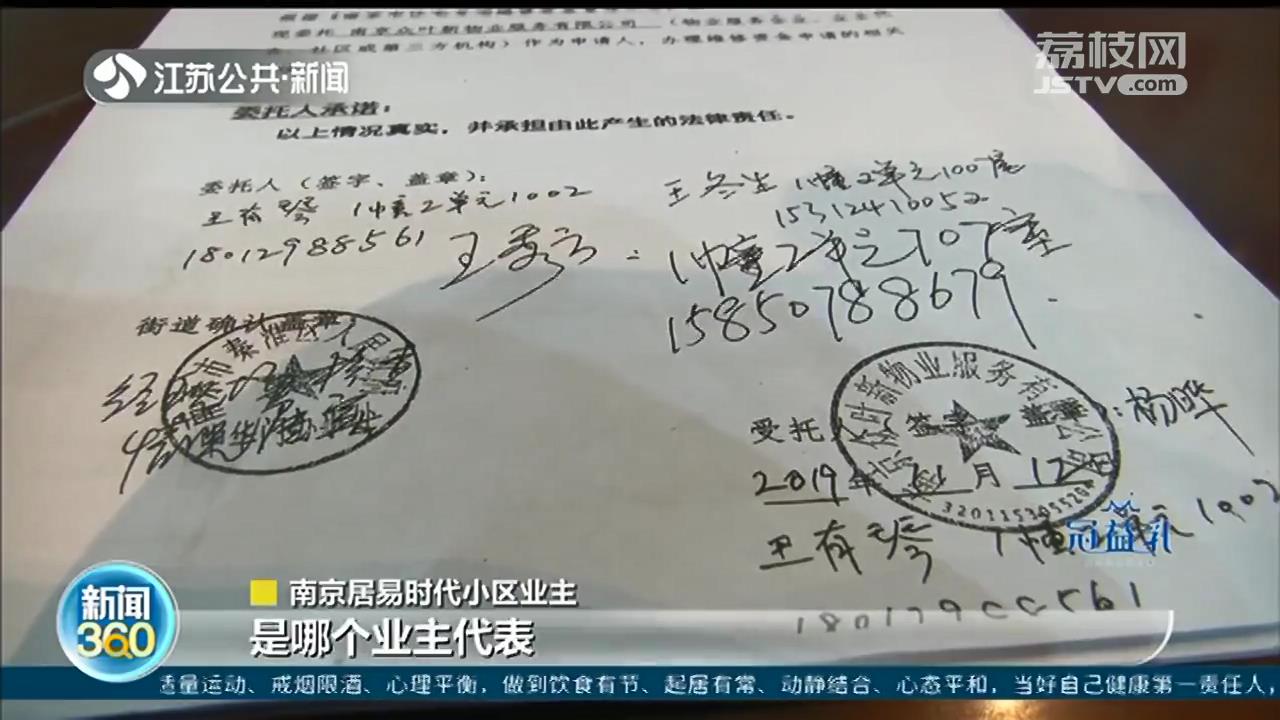 现委托 南京众叶新物业服务有限公司 （物业服务企业、业主代
表、社区或第三方机构）作为申请人，办理维修资金申请的相关
江苏公共·新闻
荔枝网
JSTV.com
委托人承诺：
以上情况真实，并承担由此产生的法律责任。
委托人（签字、盖章）：
王冬生 1幢2单元100
15312410052
卫有琴 1幢2单元1002
18012988561
王秀方：1幢2单元707室
15850788679
街道确认盖章
受托 签字 盖章：杨晔
南京众叶新物业服务有限公司
2019年 11月 12日
卫有琴 1幢 单元1002
冠益乳
新闻
360
南京居易时代小区业主
是哪个业主代表
适量运动、戒烟限酒、心理平衡，做到饮食有节、起居有常、动静结合、心态平和，当好自己健康第一责任人，